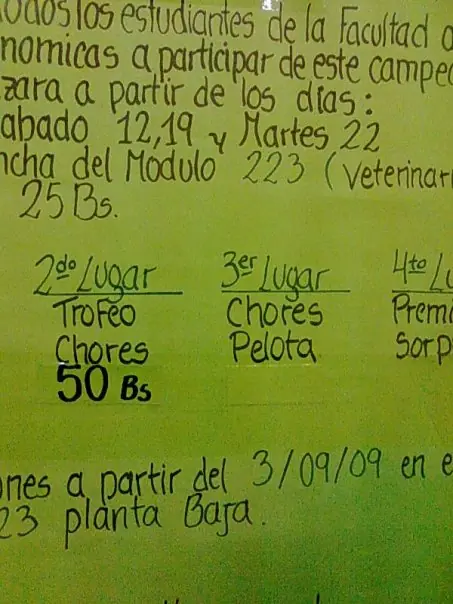 odos los estudiantes de la Facultad
nomicas a participar de este campe
zara a partir de los días:
abado 12,19 y Martes 22
ncha del Modulo 223 (Veterinar
25 Bs.
2do Lugar 3er Lugar 4to Lu
Trofeo Chores Premi
Chores Pelota Sorp
50 Bs
ones a partir del 3/09/09 en e
23 planta Baja.